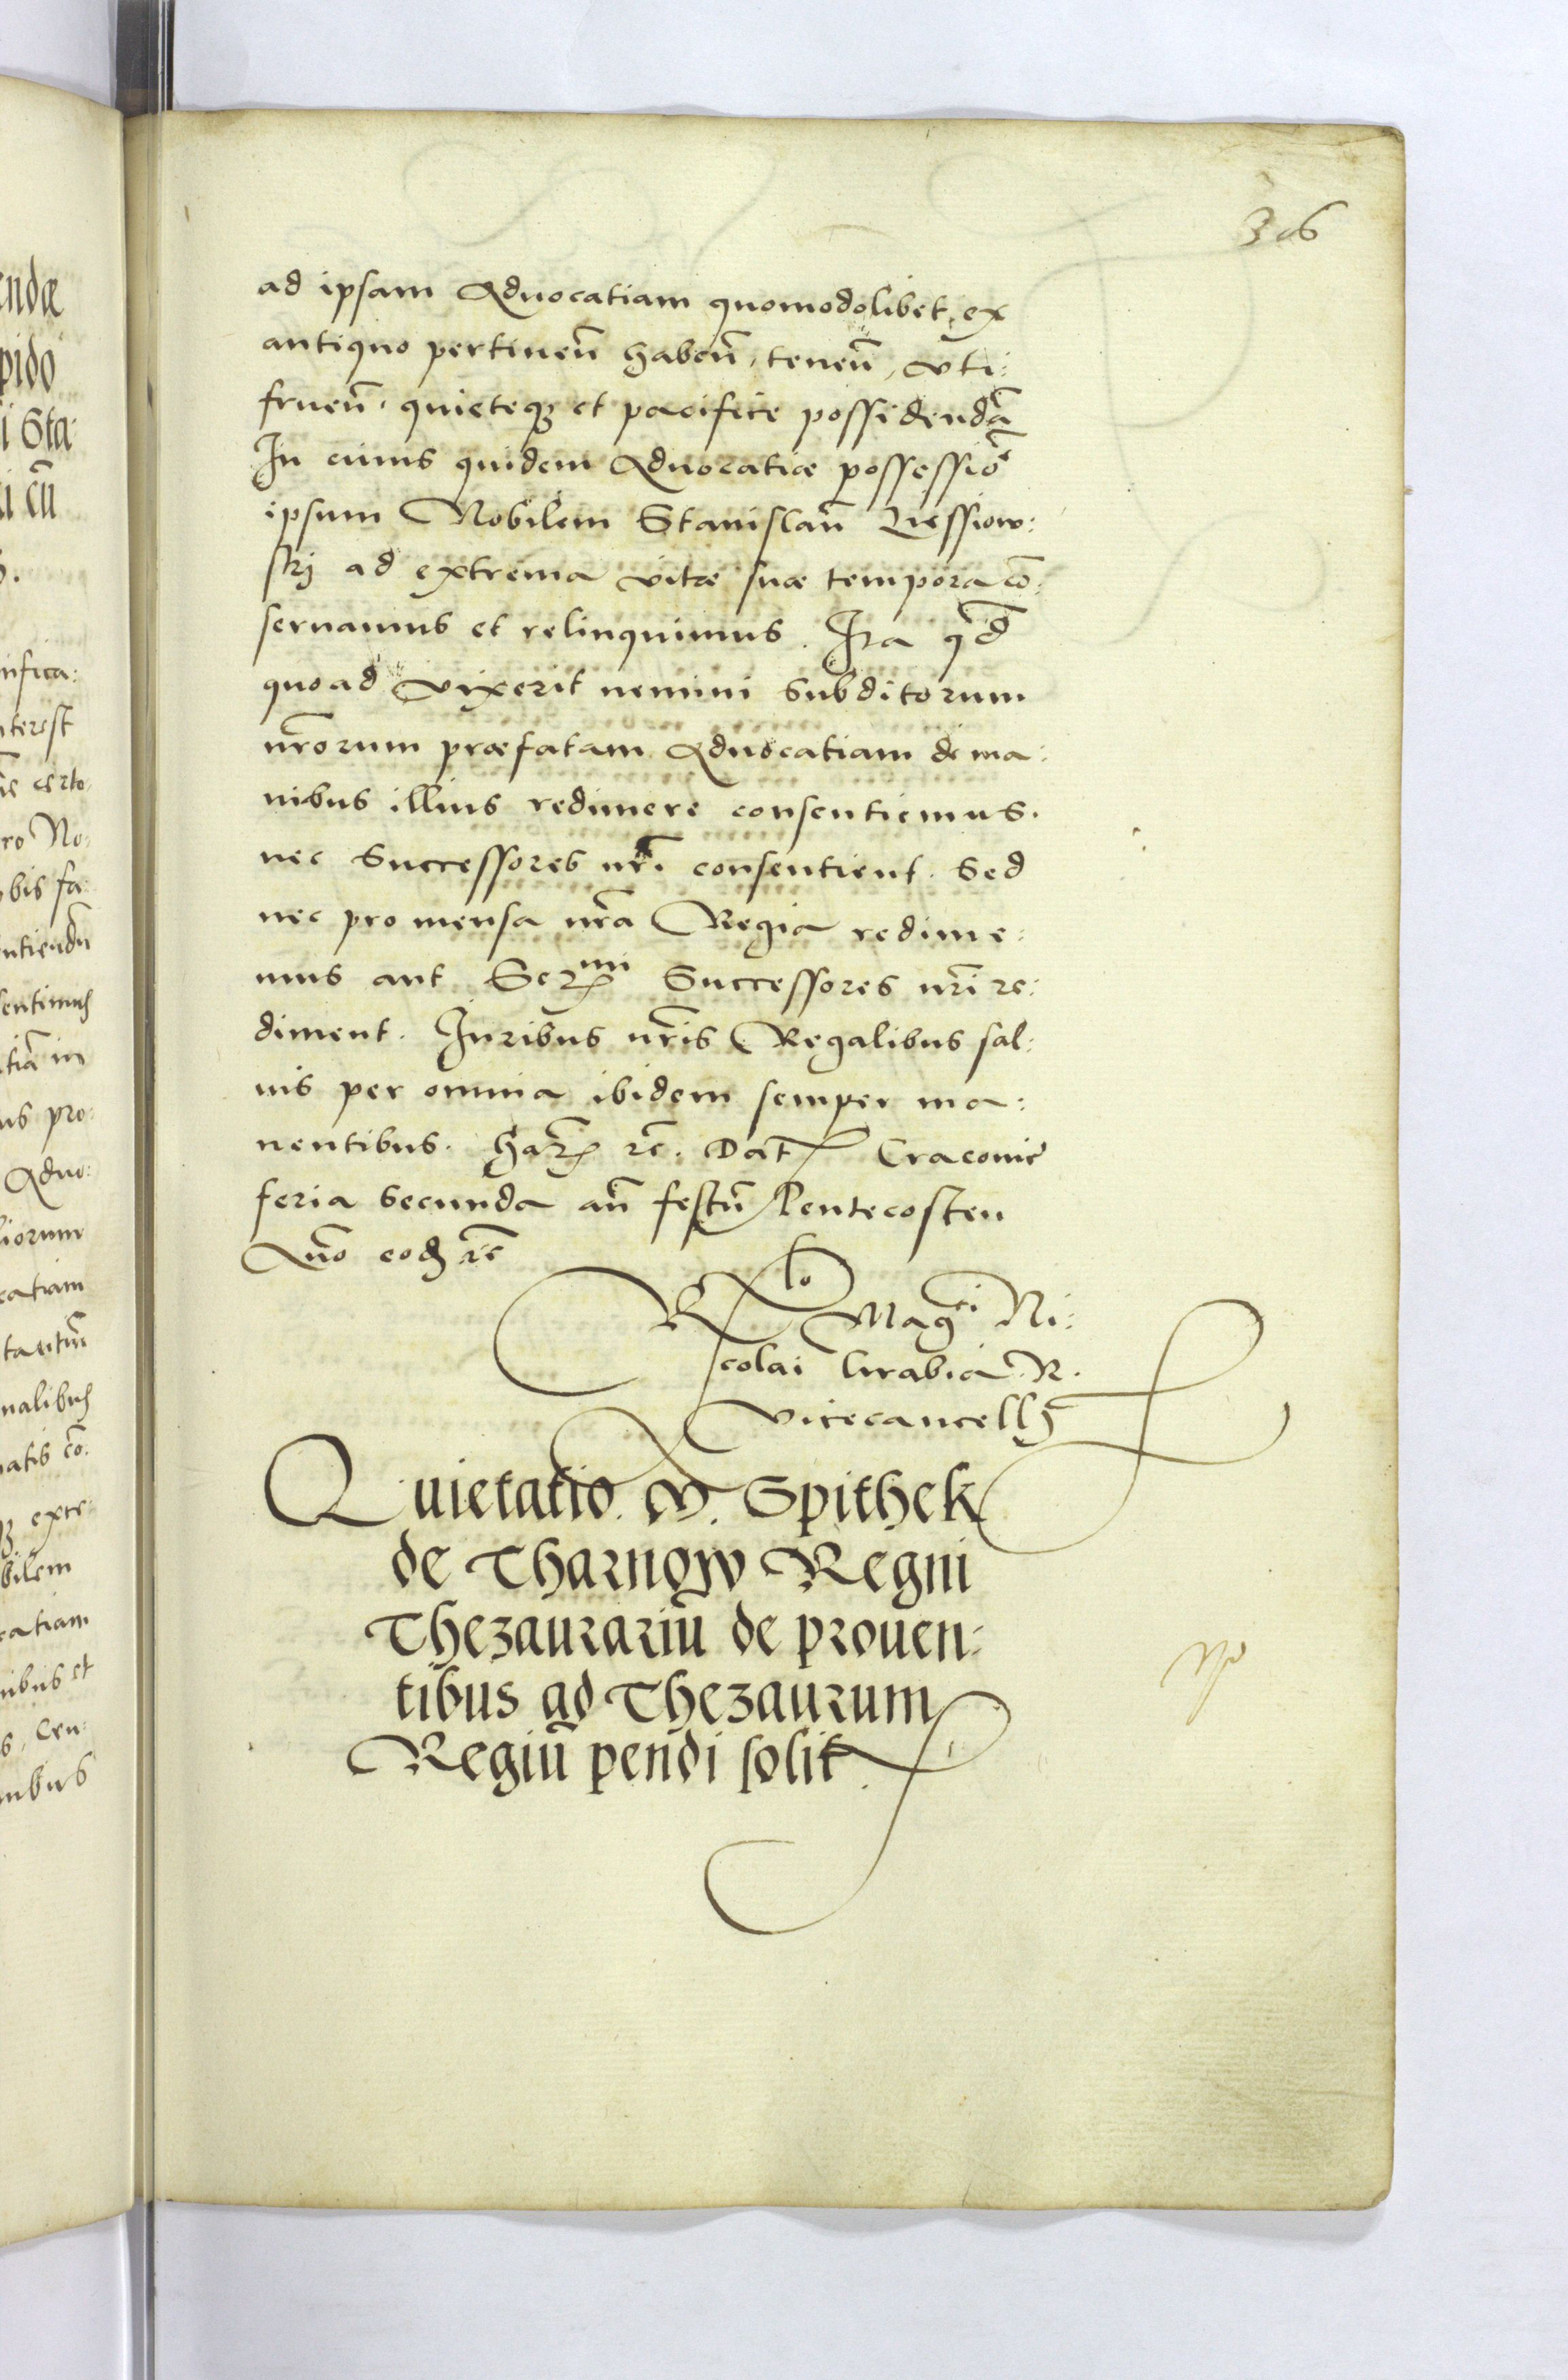 306
ad ipsam Aduocatiam quomodolibet ex
antiquo pertineñ habeñ, teneñ, vti:
frueñ. quieteq3 et pacifice possidendā
In cuius quidem Aduocatiæ possessiōe
ipsum Nobilem Stanislaū Liessiow:
skj ad extrema vitæ suæ tempora cō:
seruamus et relinquimus. Ita qđ
quoad vixerit nemini Subditorum
nr̃orum præfatam Aduocatiam de ma:
nibus illius redimere consentiemus.
nec Successores nr̃i consentient. Sed
nec pro mensa nr̃a Regia redime:
mus aut Ser^mi Successores nr̃i re:
diment. Iuribus nr̃is Regalibus sal:
uis per omnia ibidem semper ma:
nentibus. Har̃ rc̃. Dat Cracouiẽ
feria Secunda añ festū Pentecosten
Año eod rc̃
R^lo Mag^ci Ni:
colai Grabia R.
vicecancell
Quietatio. M. Spithek
de Tharnow Regni
Thezaurariū de prouen:
tibus ad Thezaurum
Regiū pendi solit.